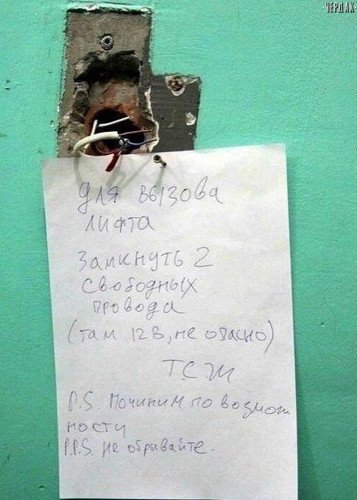 ЧЕРДАК
Для вызова
лифта
Замкнуть 2
свободных
провода
(там 12В, не опасно)
ТСЖ
P.S. Починим по возмож
ности
P.P.S. Не обрывайте.